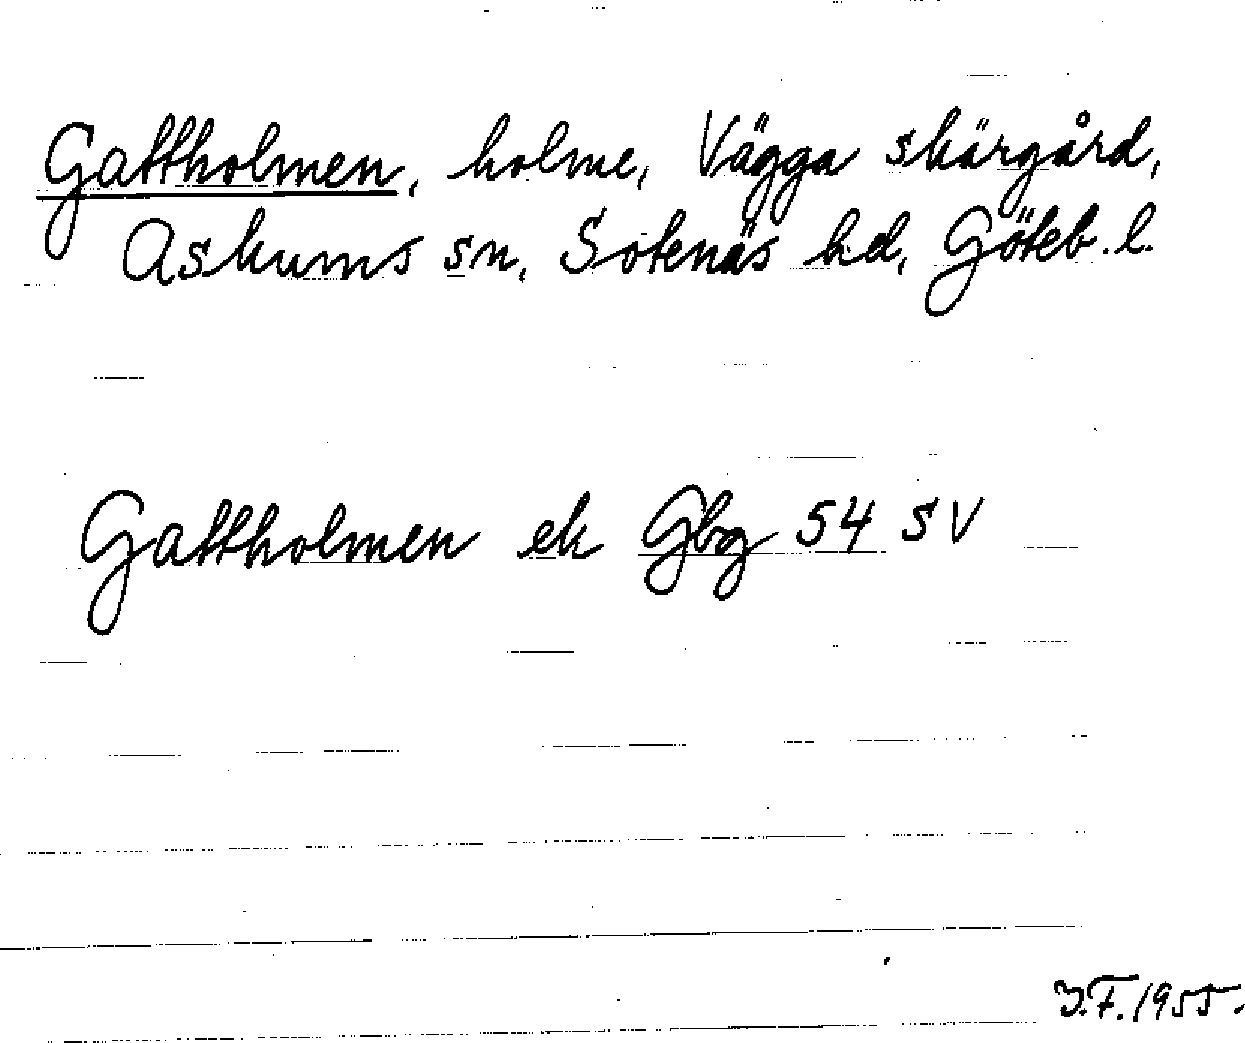 Gattholmen, holme, Vägga skärgård,
Askums sn, Sotenäs hd, Göteb. l.
Gattholmen ek Gbg 54 SV
J.F. 1955.